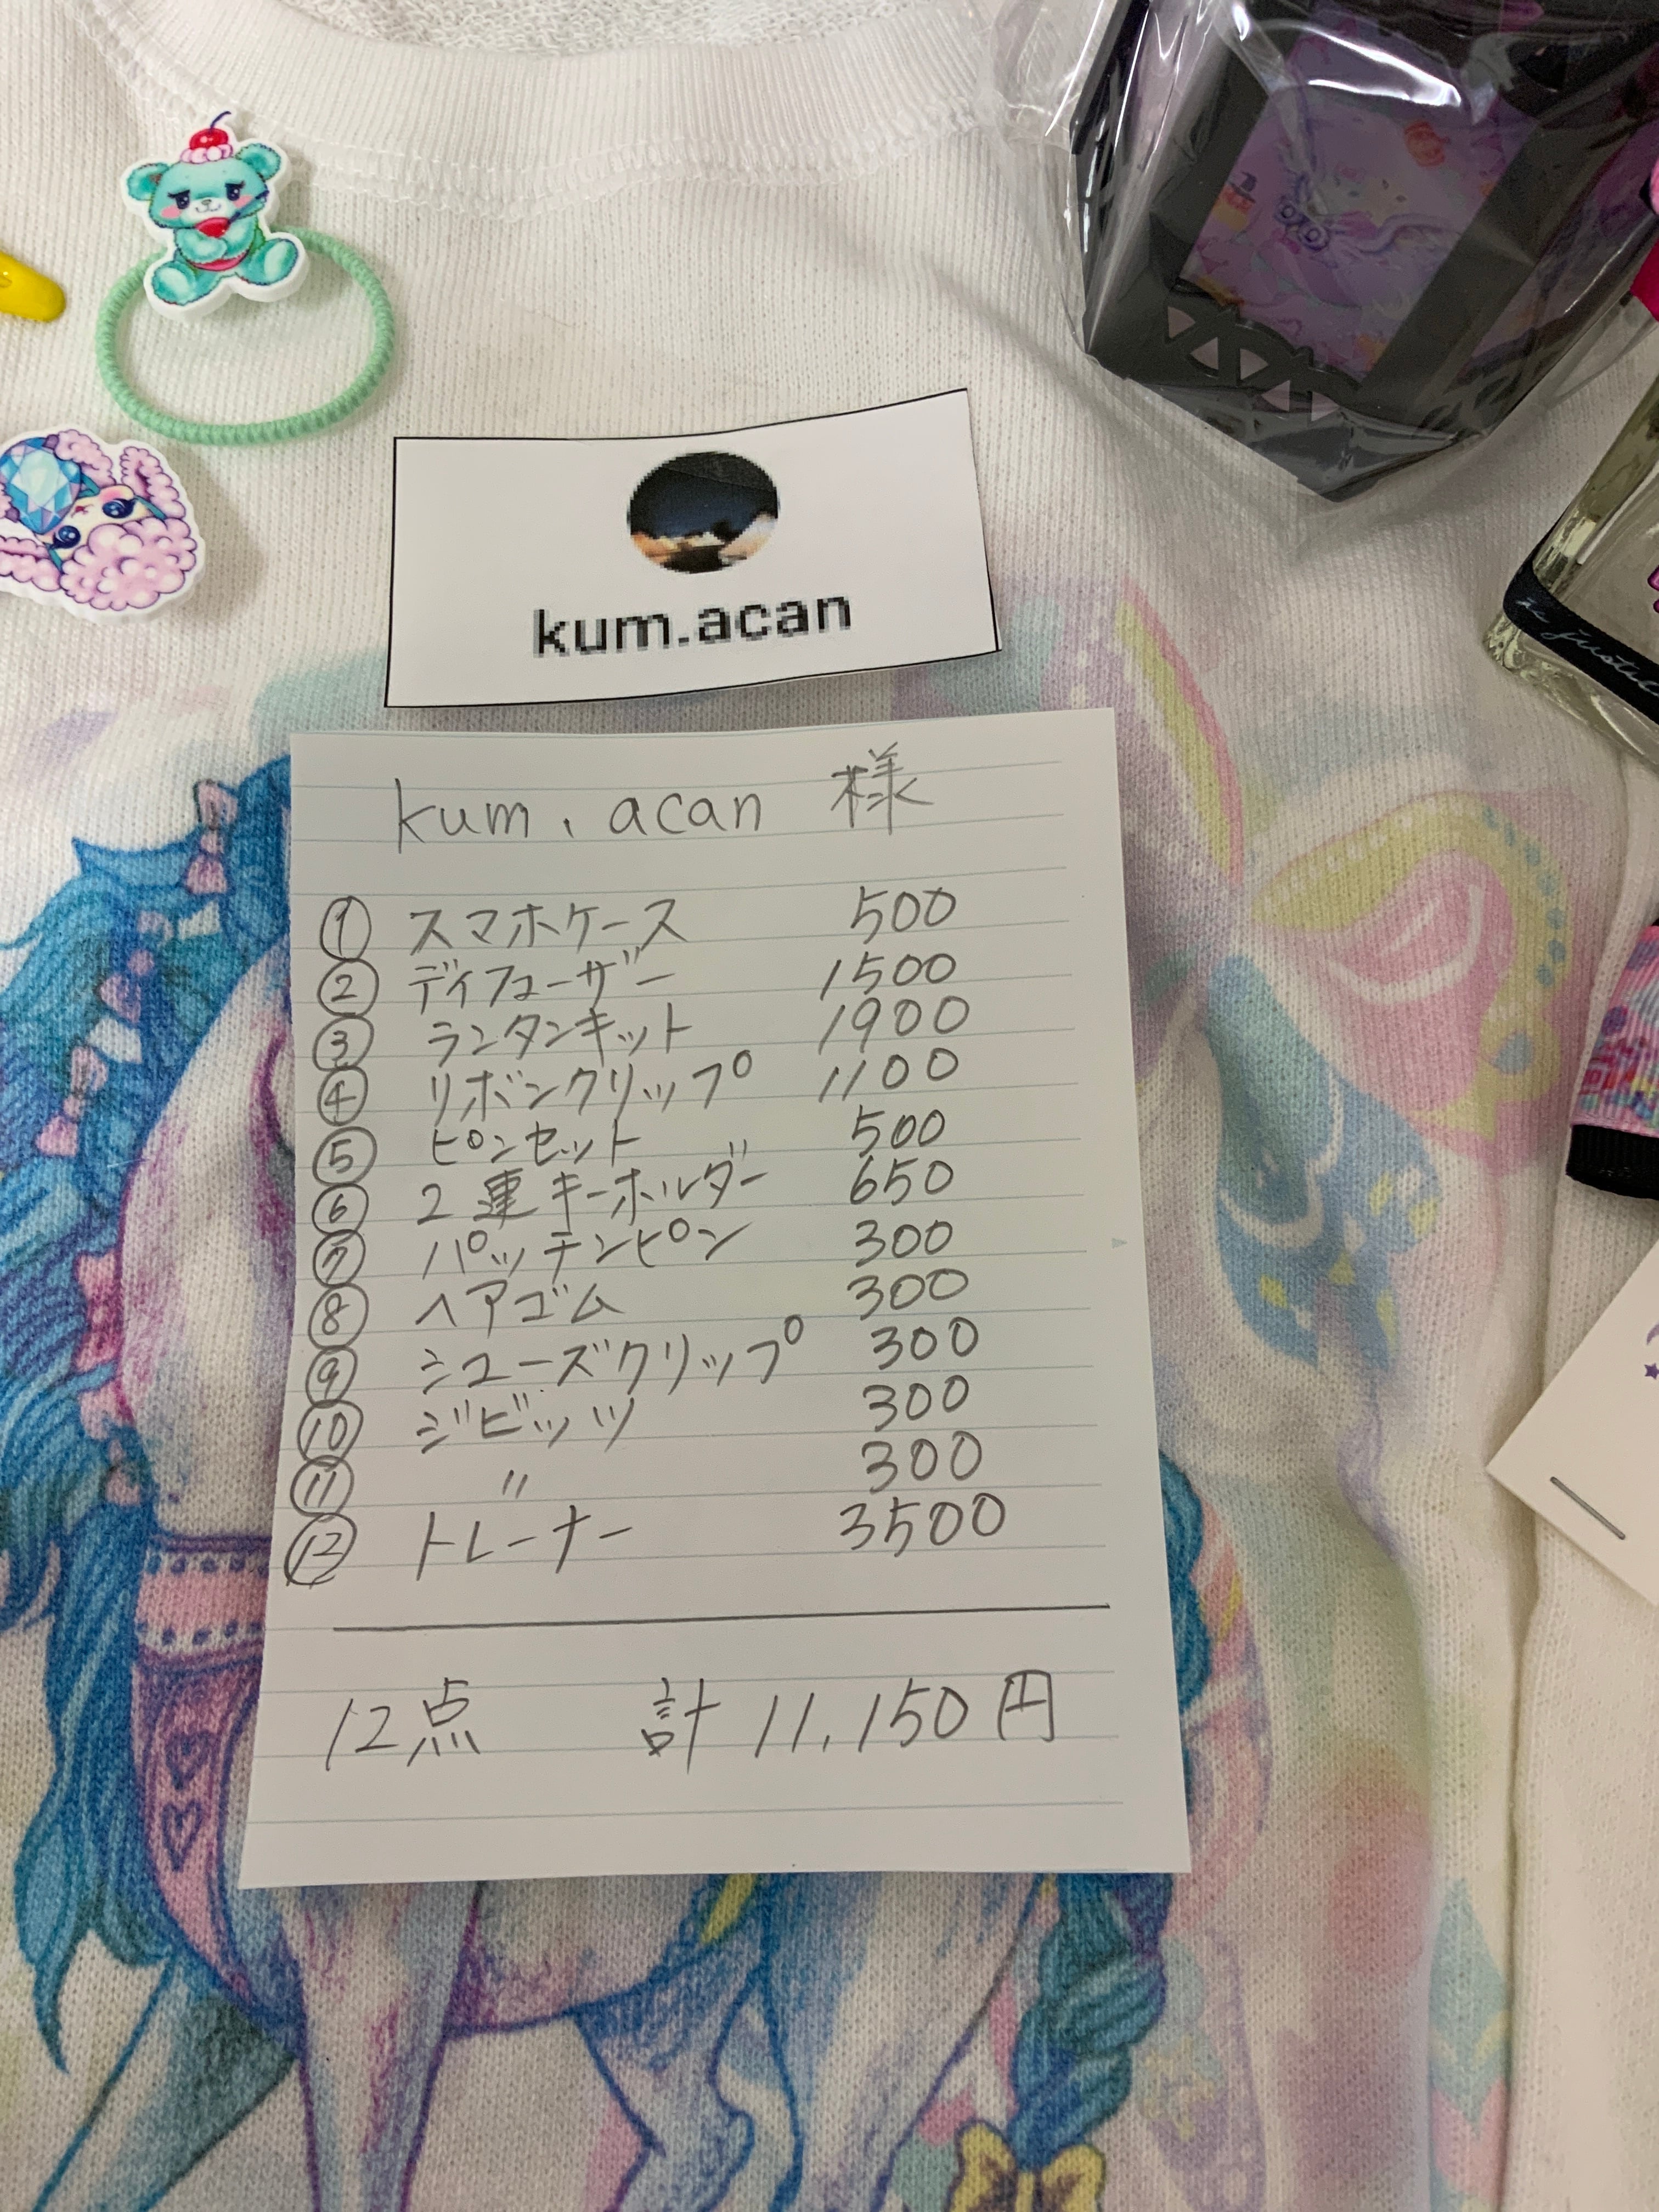 kum.acan
kum.acan 様
① スマホケース 500
② ディフューザー 1500
③ ランタンキット 1900
④ リボンクリップ 1100
⑤ ピンセット 500
⑥ 2連キーホルダー 650
⑦ パッチンピン 300
⑧ ヘアゴム 300
⑨ シューズクリップ 300
⑩ ジビッツ 300
⑪ 〃 300
⑫ トレーナー 3500
12点 計 11,150円